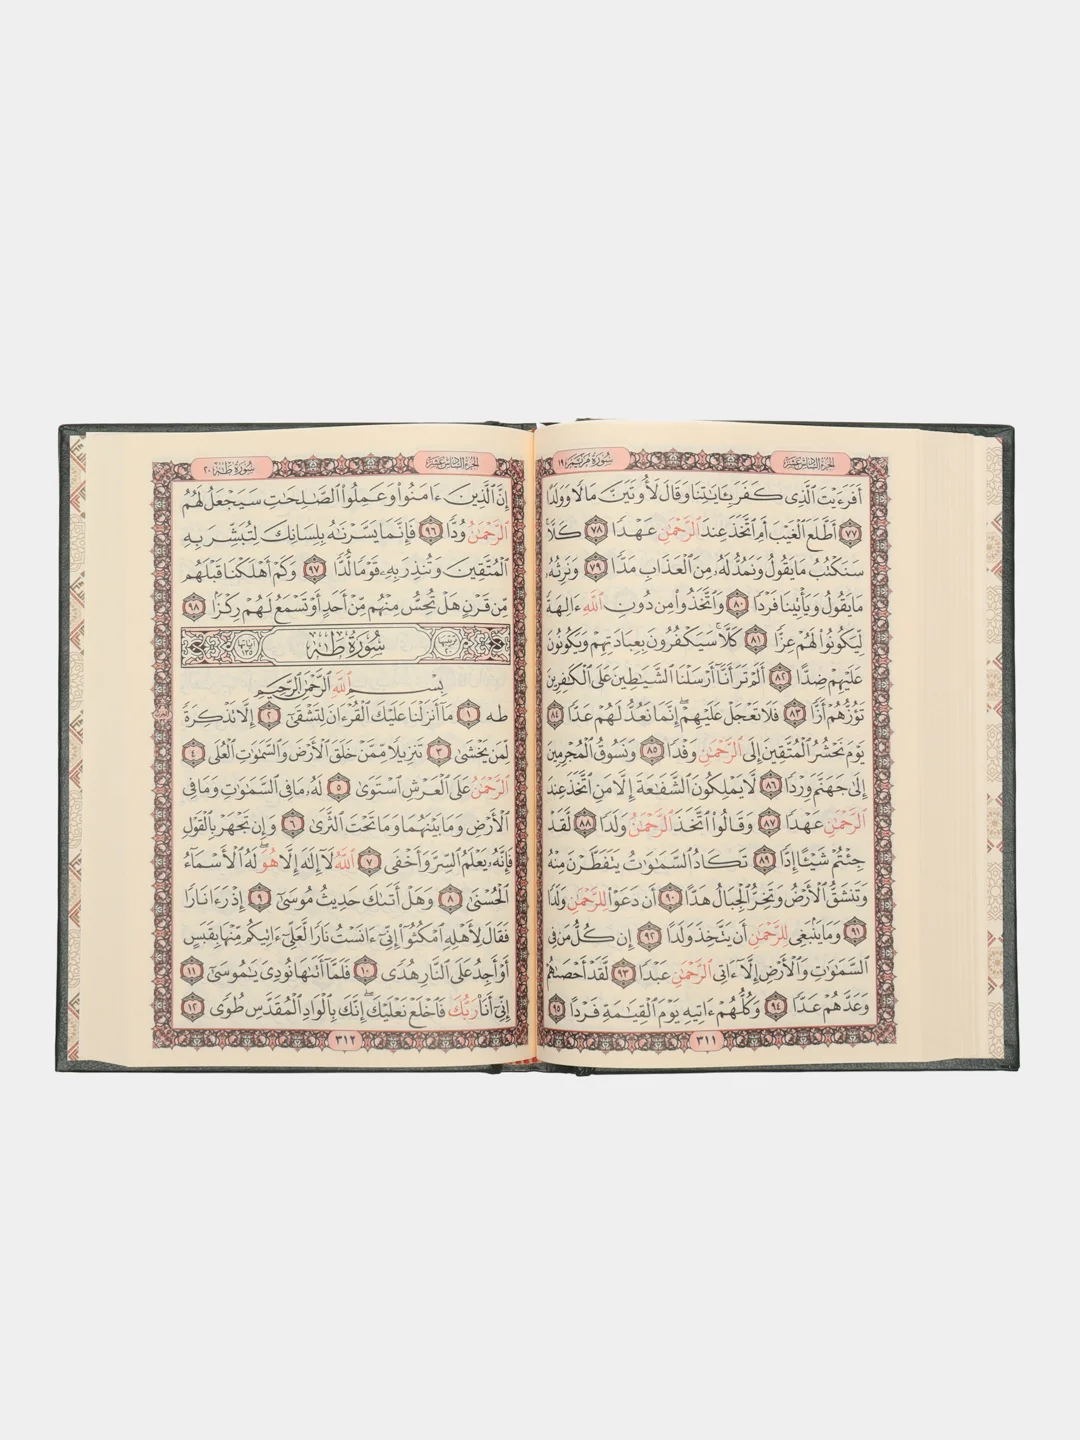 الجزء السادس عشر
سورة مريم ١٩
أَفَرَءَيْتَ ٱلَّذِى كَفَرَ بِـَٔايَٰتِنَا وَقَالَ لَأُوتَيَنَّ مَالًا وَوَلَدًا
٧٧ أَطَّلَعَ ٱلْغَيْبَ أَمِ ٱتَّخَذَ عِندَ ٱلرَّحْمَٰنِ عَهْدًا ٧٨ كَلَّا
سَنَكْتُبُ مَا يَقُولُ وَنَمُدُّ لَهُۥ مِنَ ٱلْعَذَابِ مَدًّا ٧٩ وَنَرِثُهُۥ
مَا يَقُولُ وَيَأْتِينَا فَرْدًا ٨٠ وَٱتَّخَذُوا۟ مِن دُونِ ٱللَّهِ ءَالِهَةً
لِّيَكُونُوا۟ لَهُمْ عِزًّا ٨١ كَلَّا سَيَكْفُرُونَ بِعِبَادَتِهِمْ وَيَكُونُونَ
عَلَيْهِمْ ضِدًّا ٨٢ أَلَمْ تَرَ أَنَّآ أَرْسَلْنَا ٱلشَّيَٰطِينَ عَلَى ٱلْكَٰفِرِينَ
تَؤُزُّهُمْ أَزًّا ٨٣ فَلَا تَعْجَلْ عَلَيْهِمْ إِنَّمَا نَعُدُّ لَهُمْ عَدًّا ٨٤
يَوْمَ نَحْشُرُ ٱلْمُتَّقِينَ إِلَى ٱلرَّحْمَٰنِ وَفْدًا ٨٥ وَنَسُوقُ ٱلْمُجْرِمِينَ
إِلَىٰ جَهَنَّمَ وِرْدًا ٨٦ لَّا يَمْلِكُونَ ٱلشَّفَٰعَةَ إِلَّا مَنِ ٱتَّخَذَ عِندَ
ٱلرَّحْمَٰنِ عَهْدًا ٨٧ وَقَالُوا۟ ٱتَّخَذَ ٱلرَّحْمَٰنُ وَلَدًا ٨٨ لَّقَدْ
جِئْتُمْ شَيْـًٔا إِدًّا ٨٩ تَكَادُ ٱلسَّمَٰوَٰتُ يَتَفَطَّرْنَ مِنْهُ
وَتَنشَقُّ ٱلْأَرْضُ وَتَخِرُّ ٱلْجِبَالُ هَدًّا ٩٠ أَن دَعَوْا۟ لِلرَّحْمَٰنِ وَلَدًا
٩١ وَمَا يَنۢبَغِى لِلرَّحْمَٰنِ أَن يَتَّخِذَ وَلَدًا ٩٢ إِن كُلُّ مَن فِى
ٱلسَّمَٰوَٰتِ وَٱلْأَرْضِ إِلَّآ ءَاتِى ٱلرَّحْمَٰنِ عَبْدًا ٩٣ لَّقَدْ أَحْصَىٰهُمْ
وَعَدَّهُمْ عَدًّا ٩٤ وَكُلُّهُمْ ءَاتِيهِ يَوْمَ ٱلْقِيَٰمَةِ فَرْدًا ٩٥
٣١١
الجزء السادس عشر
سورة طه ٢٠
إِنَّ ٱلَّذِينَ ءَامَنُوا۟ وَعَمِلُوا۟ ٱلصَّٰلِحَٰتِ سَيَجْعَلُ لَهُمُ
ٱلرَّحْمَٰنُ وُدًّا ٩٦ فَإِنَّمَا يَسَّرْنَٰهُ بِلِسَانِكَ لِتُبَشِّرَ بِهِ
ٱلْمُتَّقِينَ وَتُنذِرَ بِهِۦ قَوْمًا لُّدًّا ٩٧ وَكَمْ أَهْلَكْنَا قَبْلَهُم
مِّن قَرْنٍ هَلْ تُحِسُّ مِنْهُم مِّنْ أَحَدٍ أَوْ تَسْمَعُ لَهُمْ رِكْزًۢا ٩٨
سُورَةُ طه
بِسْمِ ٱللَّهِ ٱلرَّحْمَٰنِ ٱلرَّحِيمِ
طه ١ مَآ أَنزَلْنَا عَلَيْكَ ٱلْقُرْءَانَ لِتَشْقَىٰٓ ٢ إِلَّا تَذْكِرَةً
لِّمَن يَخْشَىٰ ٣ تَنزِيلًا مِّمَّنْ خَلَقَ ٱلْأَرْضَ وَٱلسَّمَٰوَٰتِ ٱلْعُلَى ٤
ٱلرَّحْمَٰنُ عَلَى ٱلْعَرْشِ ٱسْتَوَىٰ ٥ لَهُۥ مَا فِى ٱلسَّمَٰوَٰتِ وَمَا فِى
ٱلْأَرْضِ وَمَا بَيْنَهُمَا وَمَا تَحْتَ ٱلثَّرَىٰ ٦ وَإِن تَجْهَرْ بِٱلْقَوْلِ
فَإِنَّهُۥ يَعْلَمُ ٱلسِّرَّ وَأَخْفَى ٧ ٱللَّهُ لَآ إِلَٰهَ إِلَّا هُوَ لَهُ ٱلْأَسْمَآءُ
ٱلْحُسْنَىٰ ٨ وَهَلْ أَتَىٰكَ حَدِيثُ مُوسَىٰٓ ٩ إِذْ رَءَا نَارًا
فَقَالَ لِأَهْلِهِ ٱمْكُثُوٓا۟ إِنِّىٓ ءَانَسْتُ نَارًا لَّعَلِّىٓ ءَاتِيكُم مِّنْهَا بِقَبَسٍ
أَوْ أَجِدُ عَلَى ٱلنَّارِ هُدًى ١٠ فَلَمَّآ أَتَىٰهَا نُودِىَ يَٰمُوسَىٰٓ ١١
إِنِّىٓ أَنَا۠ رَبُّكَ فَٱخْلَعْ نَعْلَيْكَ إِنَّكَ بِٱلْوَادِ ٱلْمُقَدَّسِ طُوًى ١٢
٣١٢